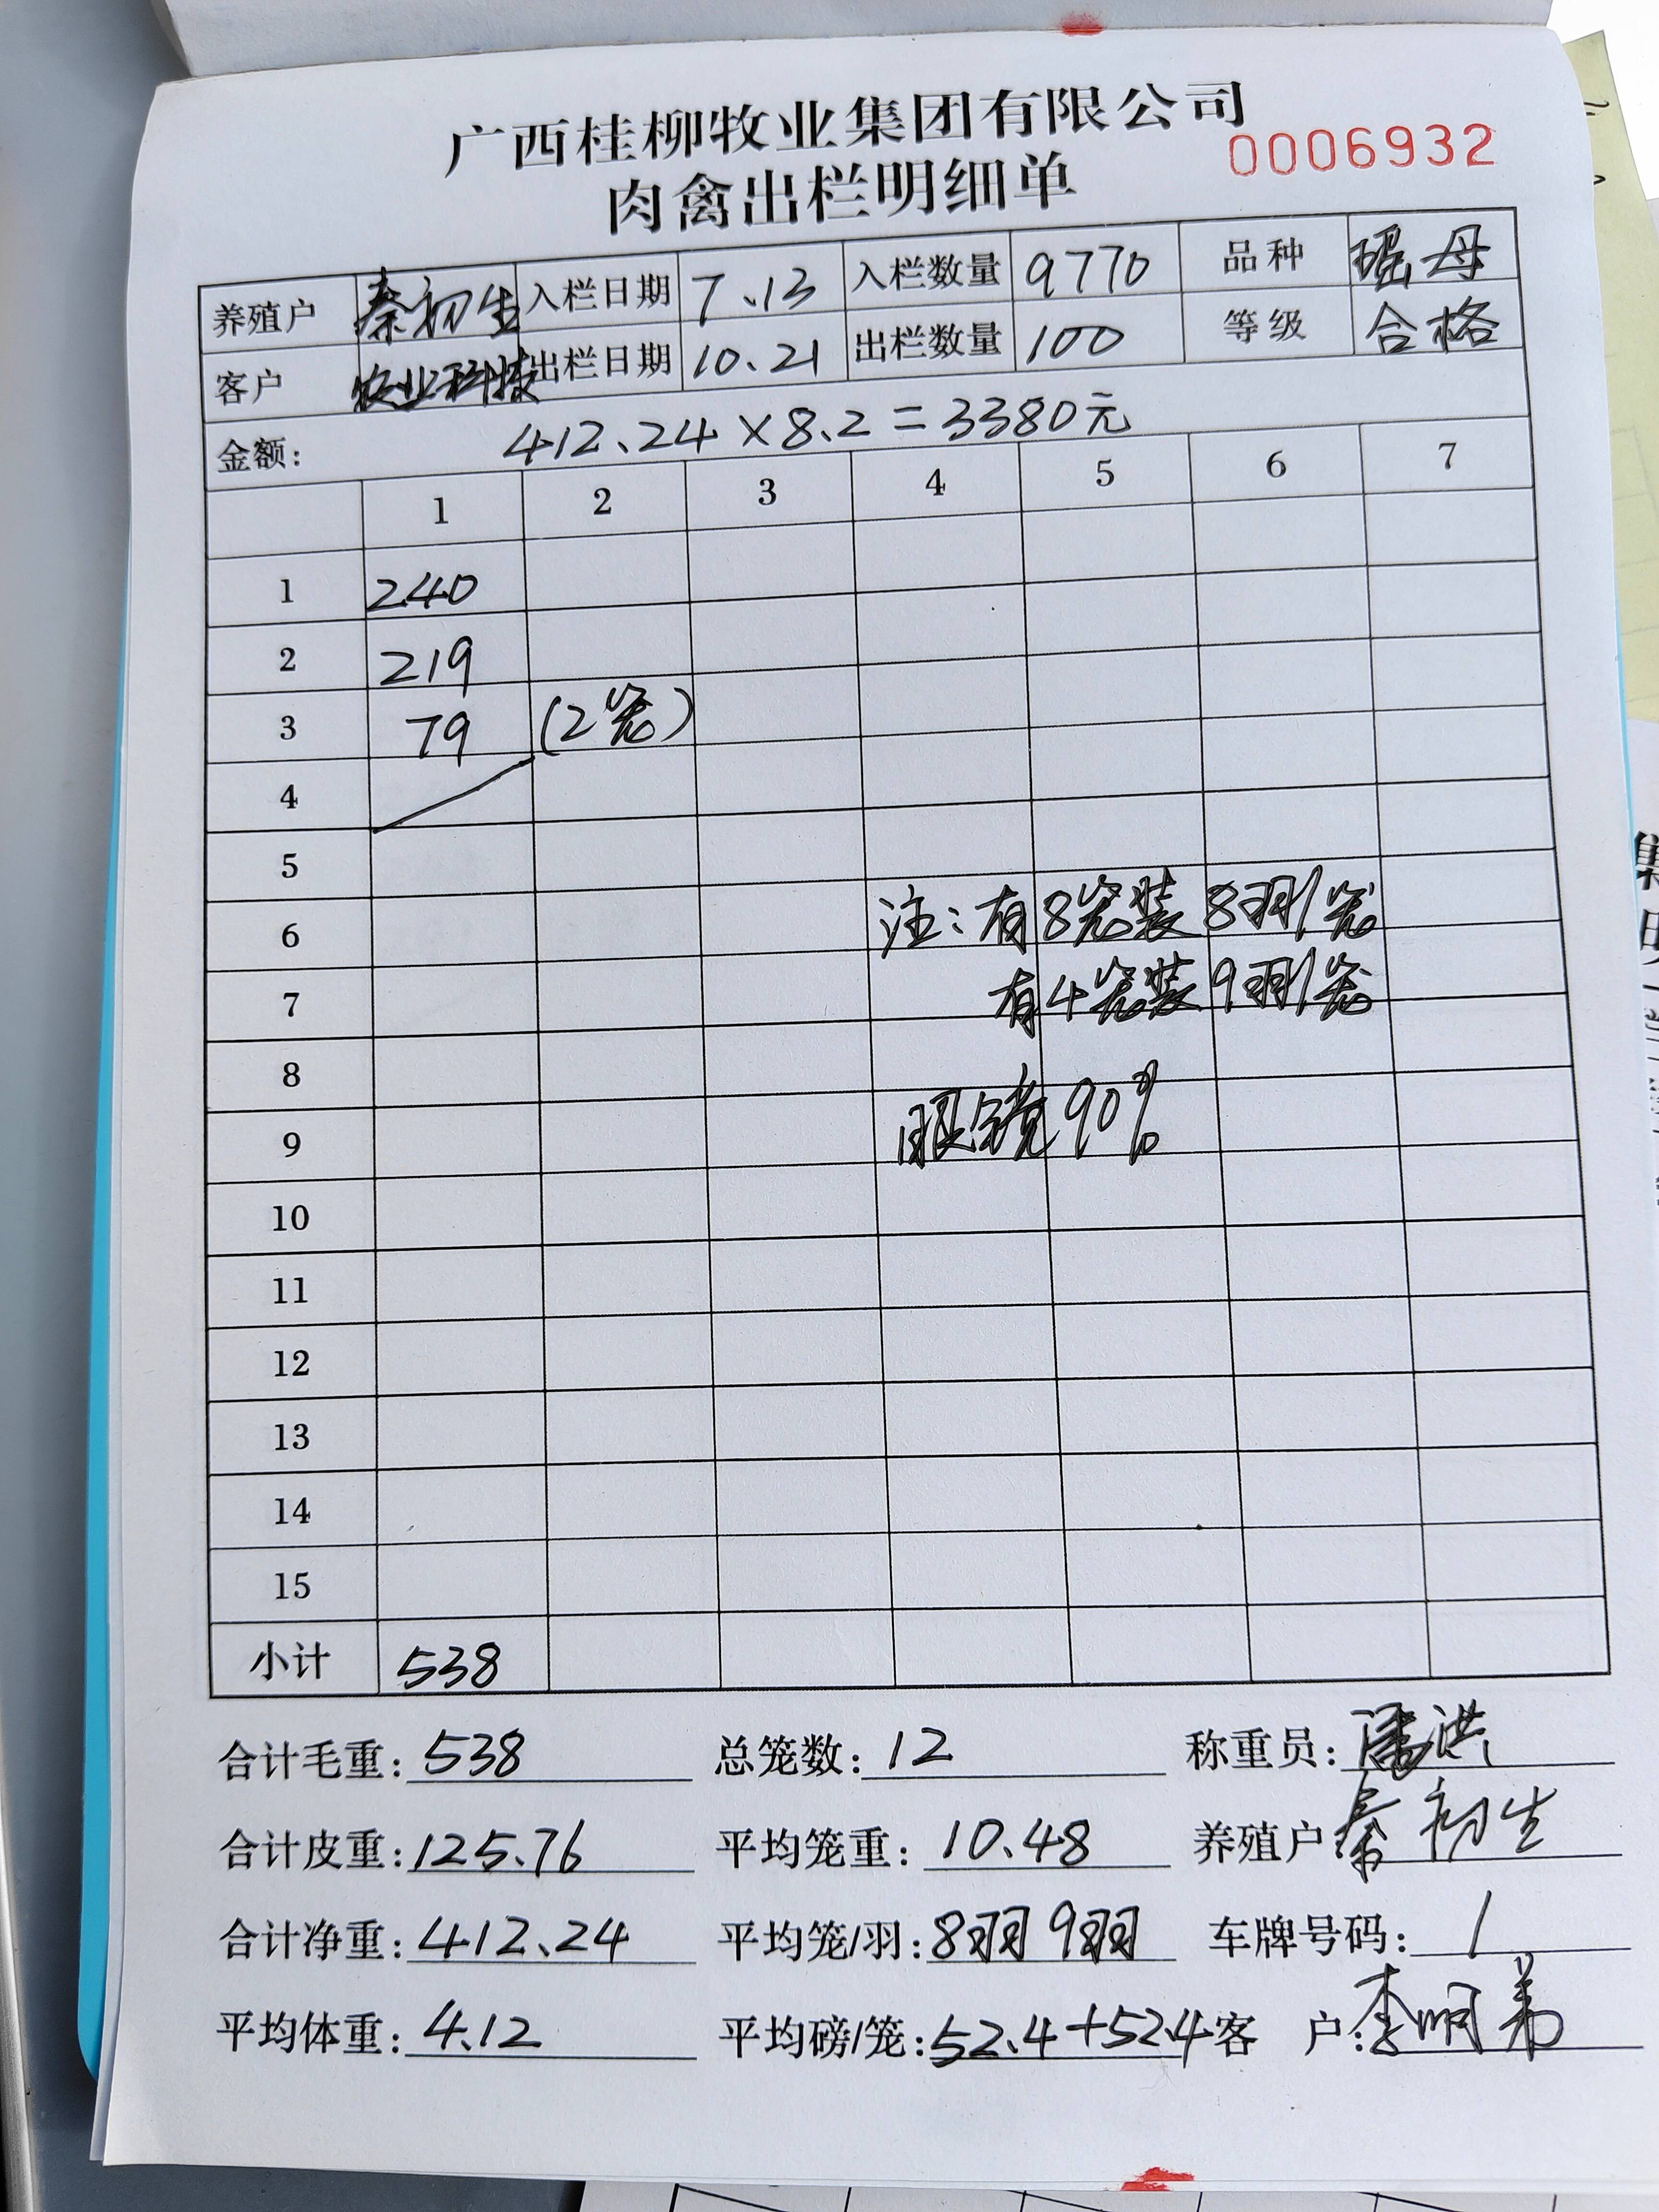 广西桂柳牧业集团有限公司
0006932
肉禽出栏明细单
养殖户 秦初生 入栏日期 7.13 入栏数量 9770 品种 瑶母
客户 农业科技 出栏日期 10.21 出栏数量 100 等级 合格
金额: 412.24×8.2=3380元
1 2 3 4 5 6 7
1 240
2 219
3 79 (2笼)
4
5
6 注:有8笼装8羽/笼
7 有4笼装9羽/笼
8
9 眼镜90%
10
11
12
13
14
15
小计 538
合计毛重: 538 总笼数: 12 称重员: 潘洪
合计皮重: 125.76 平均笼重: 10.48 养殖户 秦初生
合计净重: 412.24 平均笼/羽: 8羽 9羽 车牌号码: /
平均体重: 4.12 平均磅/笼: 52.4+52.4 客 户: 李明弟